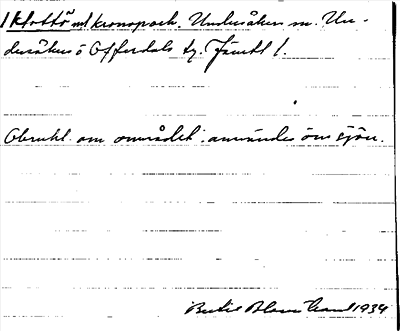 1 Klottö ml kronopark. Undersåkers sn. Un-
dersåkers o Offerdals tg. Jämtl l.
Obrukl. om området. användes om sjön.
Bertil Blom 1934